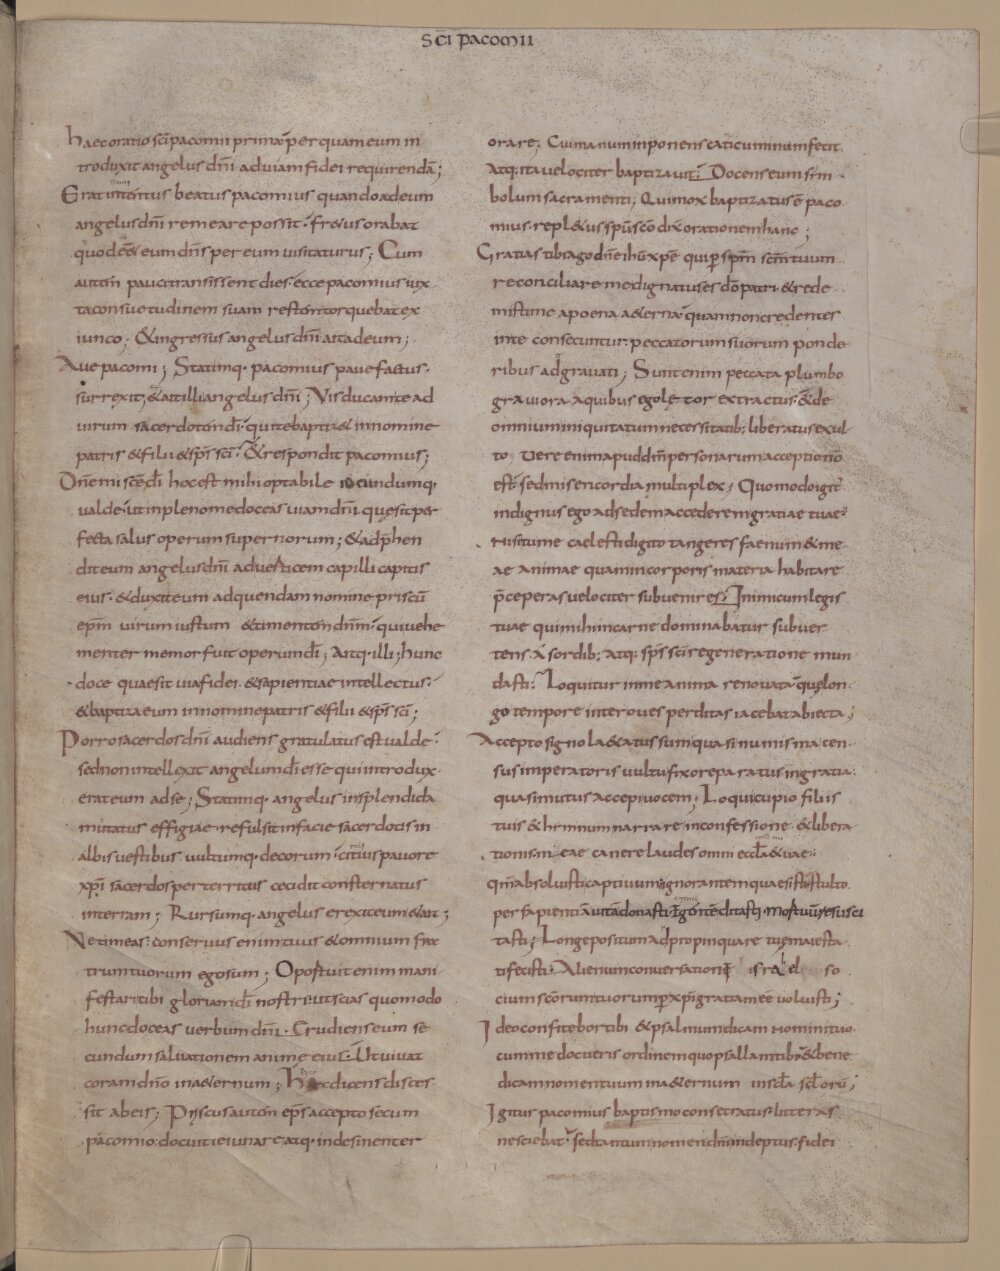 SCI PACOMII
haec oratio sci pacomii prima ē per quam eum in
troduxit angelus dni ad uiam fidei requirendā;
Erat intentus beatus pacomius quando ad eum
angelus dni remeare possit · fretus orabat
quod eum dns per eum uisitaturus; Cum
autem pauci transissent dies · ecce pacomius iux
ta consuetudinem suam restem torquebat ex
iunco; & ingressus angelus dni ait ad eum;
Aue pacomi; Statimq· pacomius pauefactus·
surrexit; & ait illi angelus dni; Vis ducam te ad
uirum sacerdotem di· qui te baptiz& in nomine
patris & filii & sps sci · & respondit pacomius;
Dne mi sce di hoc est mihi optabile iocundumq·
ualde · ut in pleno me doceas uiam dni· que sit per
fecta salus operum supernorum; & adphen
dit eum angelus dni ad uerticem capilli capitis
eius · & duxit eum ad quendam nomine priscū
epm uirum iustum & timentem dnm · qui uehe
menter memor fuit operum di; Aitq· illi; hunc
doce quae sit uia fidei · & sapientiae intellectus·
& baptiza eum in nomine patris & filii & sps sci;
Porro sacerdos dni audiens gratulatus est ualde·
sed non intellexit angelum di esse qui introdux
erat eum ad se; Statimq· angelus in splendida
mutatus effigiae · refulsit in facie sacerdotis in
albis uestibus uultumq· decorum · citius pauore
xpi sacerdos perterritus cecidit consternatus
in terram; Rursumq· angelus erexit eum & ait;
Ne timeas · conseruus enim tuus & omnium frat
trum tuorum ego sum; Oportuit enim mani
festari tibi gloriam di nostri · ut scias quomodo
hunc doceas uerbum dni · Erudiens eum se
cundum saluationem anime eius · Ut uiuat
coram dno in a&ernum; Haec dicens disces
sit ab eis; Priscus autem eps accepto secum
pacomio · docuit ieiunare atq· indesinenter
orare; Cui manum inponens caticuminum fecit·
Atq· ita uelociter baptizauit· Docens eum sim
bolum sacramenti; Qui mox baptizatus ē paco
mius · repl&us spu sco dix orationem hanc;
Gratias tibi ago dne ihu xpe qui per spm scm tuum
reconciliare me dignatus es do patri · & rede
misti me a poena a&erna · quam non credentes
in te consecuntur · peccatorum suorum ponde
ribus adgrauati; Sunt enim peccata plumbo
grauiora · a quibus ego letor extractus · & de
omnium iniquitatum necessitatib; liberatus exul
to Vere enim apud dm personarum acceptio nō
est · sed misericordia multiplex; Quomodo igit
indignus ego ad sedem accederem gratiae tuae·
Nisi tu me caelesti digito tangeres faenum & me
ae animae quam in corporis materia habitare
pceperas uelociter subuenires · Inimicum legis
tuae qui mihi in carne dominabatur subuer
tens · a sordib; atq· sps sci regeneratione mun
dasti· Loquitur in me anima renouata · que lon
go tempore inter oues perditas iacebat abiecta;
Accepto signo la&atus sum quasi numisma cen
sus imperatoris uultu fixo reparatus in gratia·
quasi mutus accepi uocem; Loqui cupio filiis
tuis & himnum narrare in confessione & libera
tionis meae canere laudes omni eccla & uae·
qm absoluisti captiuum ignorantem quaesisti · stulto
per sapientiā uitā donasti
tasti; Longe positum adpropinquare tue maiesta
ti fecisti · Alienum conuersatione israhel so
cium scorum tuorum per xpi gratiam ee uoluisti;
Ideo confitebor tibi & psalmum dicam nomini tuo·
cum me docueris ordinem quo psallam tibi · & bene
dicam nomen tuum in a&ernum in scla sclorū;
Igitur pacomius baptismo consecratus · litteras
nesciebat · sed tantum nomen dni indeptus · fidei